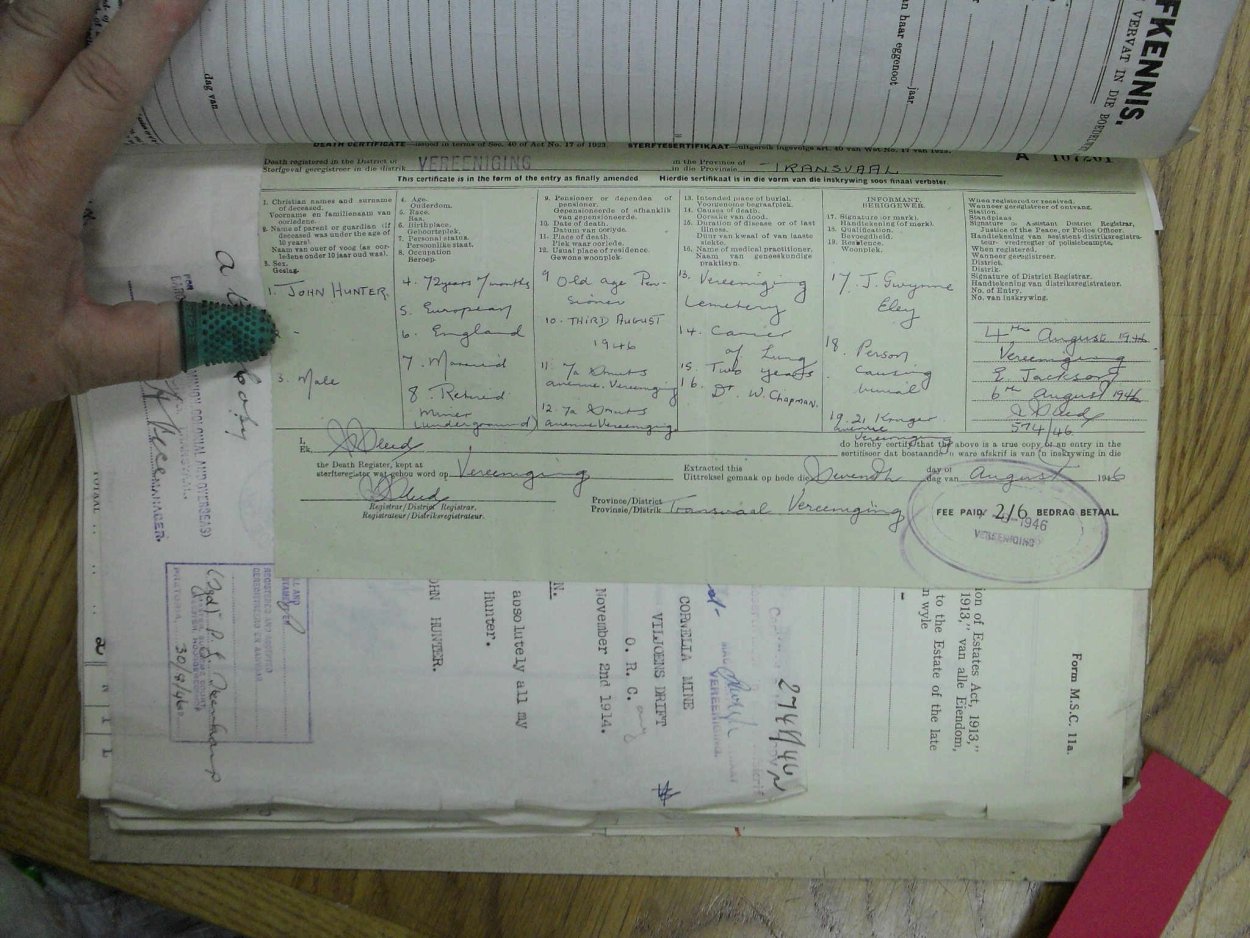 FKENNIS.
VERVAT IN DIE BOEDEL
an haar eggenoot
jaar
dag van
DEATH CERTIFICATE—issued in terms of Sec. 40 of Act No. 17 of 1923. STERFTESERTIFIKAAT—uitgereik ingevolge art. 40 van Wet No. 17 van 1923.
Death registered in the District of
Sterfgeval geregistreer in die distrik
VEREENIGING
in the Province of
in die Provinsie
TRANSVAAL
A 107261
This certificate is in the form of the entry as finally amended. Hierdie sertifikaat is in die vorm van die inskrywing soos finaal verbeter.
1. Christian names and surname
of deceased.
Voorname en familienaam van
oorledene.
2. Name of parent or guardian (if
deceased was under the age of
10 years)
Naam van ouer of voog (as oor-
ledene onder 10 jaar oud was).
3. Sex.
Geslag.
1. JOHN HUNTER.
3. Male
4. Age.
Ouderdom.
5. Race.
Ras.
6. Birthplace.
Geboorteplek.
7. Personal status.
Persoonlike staat.
8. Occupation
Beroep.
4. 72 years 7 months
5. European
6. England
7. Married
8. Retired
Miner
(underground)
9. Pensioner or dependent of
pensioner.
Gepensioneerde of afhanklik
van gepensioneerde.
10. Date of death.
Datum van oorlyde.
11. Place of death.
Plek waar oorlede.
12. Usual place of residence.
Gewone woonplek.
9 Old age Pen-
sioner
10. THIRD AUGUST
1946
11. 7a Smuts
avenue. Vereeniging
12. 7a Smuts
avenue Vereeniging
13. Intended place of burial.
Voorgenome begraafplek.
14. Causes of death.
Oorsake van dood.
15. Duration of disease or of last
illness.
Duur van kwaal of van laaste
siekte.
16. Name of medical practitioner.
Naam van geneeskundige
praktisyn.
13. Vereeniging
Cemetery
14. Cancer
of Lung
15. Two years
16. Dr. W. Chapman.
INFORMANT.
BERIGGEWER.
17. Signature (or mark).
Handtekening (of merk).
18. Qualification.
Bevoegdheid.
19. Residence.
Woonplek.
17 J. Gwynne
Eley
18. Person
causing
burial
19. 21 Kruger
avenue
Vereeniging
When registered or received.
Wanneer geregistreer of ontvang.
Station.
Standplaas
Signature of Assistant District Registrar,
Justice of the Peace, or Police Officer.
Handtekening van assistent-distriksregistra-
teur, vrederegter of polisiebeampte.
When registered.
Wanneer geregistreer.
District.
Distrik.
Signature of District Registrar.
Handtekening van distriksregistrateur.
No. of Entry.
No. van inskrywing.
4th August 1946
Vereeniging
E. Jackson
6th August 1946
574/46
I,
Ek,
do hereby certify that the above is a true copy of an entry in the
sertifiseer dat bostaande 'n ware afskrif is van 'n inskrywing in die
the Death Register, kept at
sterfteregister wat gehou word op
Vereeniging
Extracted this
Uittreksel gemaak op hede die
Seventh
day of
dag van
August
1946
Registrar/District Registrar.
Registrateur/Distriksregistrateur.
Province/District
Provinsie/Distrik
Transvaal Vereeniging
FEE PAID/ 2/6 BEDRAG BETAAL.
1946
VEREENIGING
Form M.S.C. 11a.
ion of Estates Act, 1913,"
1913," van alle Eiendom,
to the Estate of the late
n wyle
2744/46
CORNELIA MINE
VILJOENS DRIFT
O. R. C.
November 2nd 1914.
N.
absolutely all my
Hunter.
OHN HUNTER.
COLONIAL AND OVERSEAS)
MANAGER.
PRETORIA
30/8/46
TOTAAL